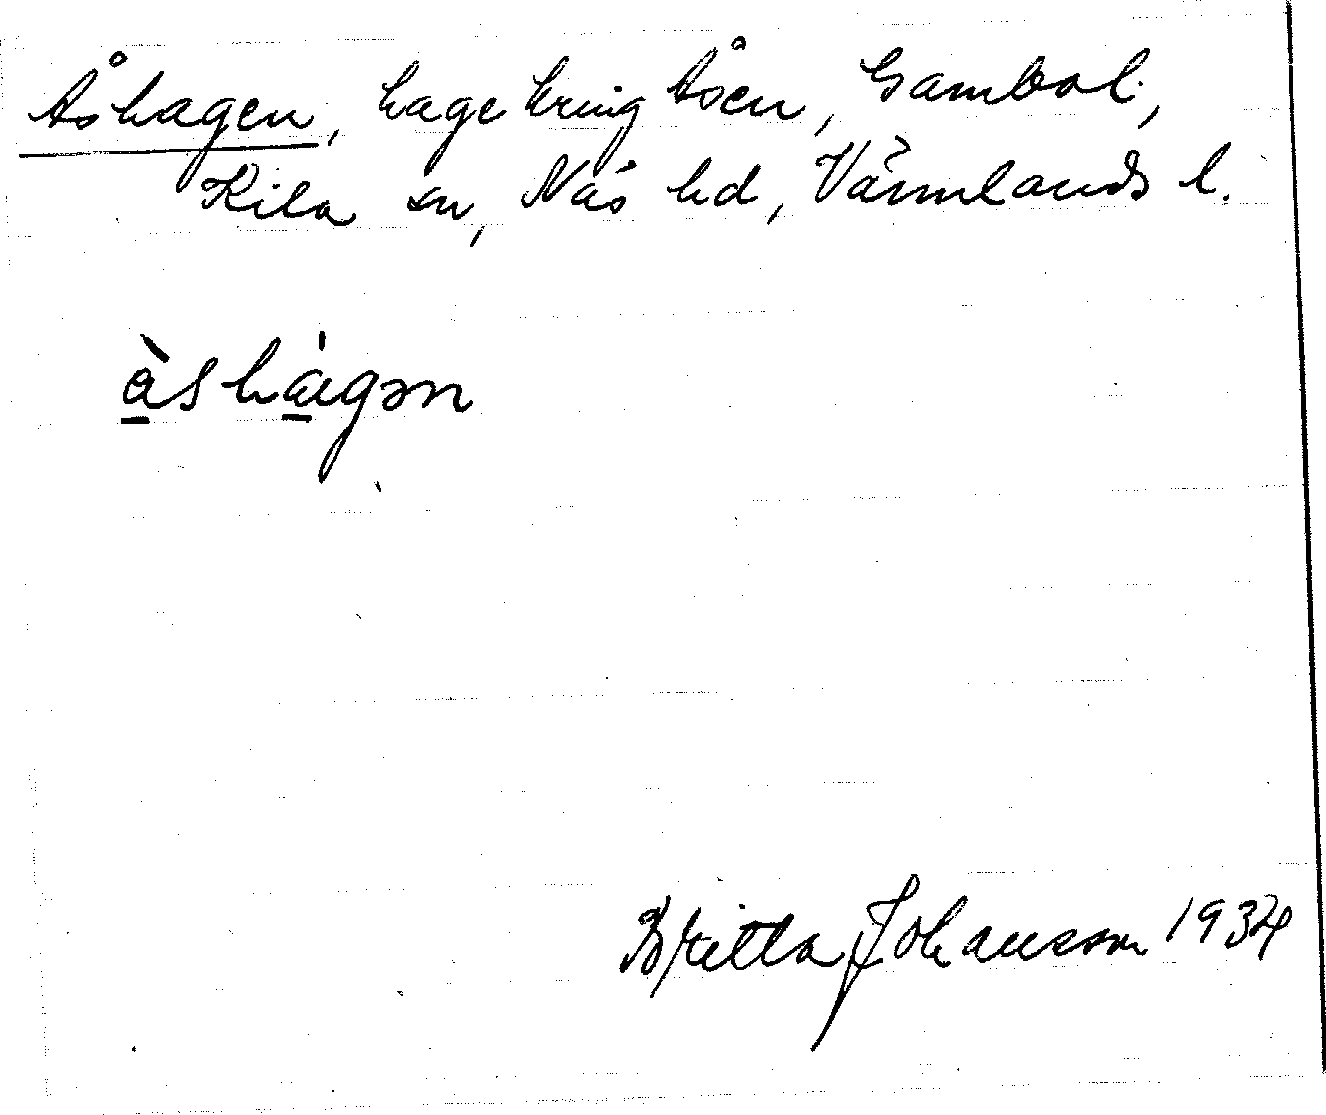 Åshagen, hage kring Åsen, Gambol,
Kila sn, Näs hd, Värmlands l.
àshágən
Britta Johansson 1934